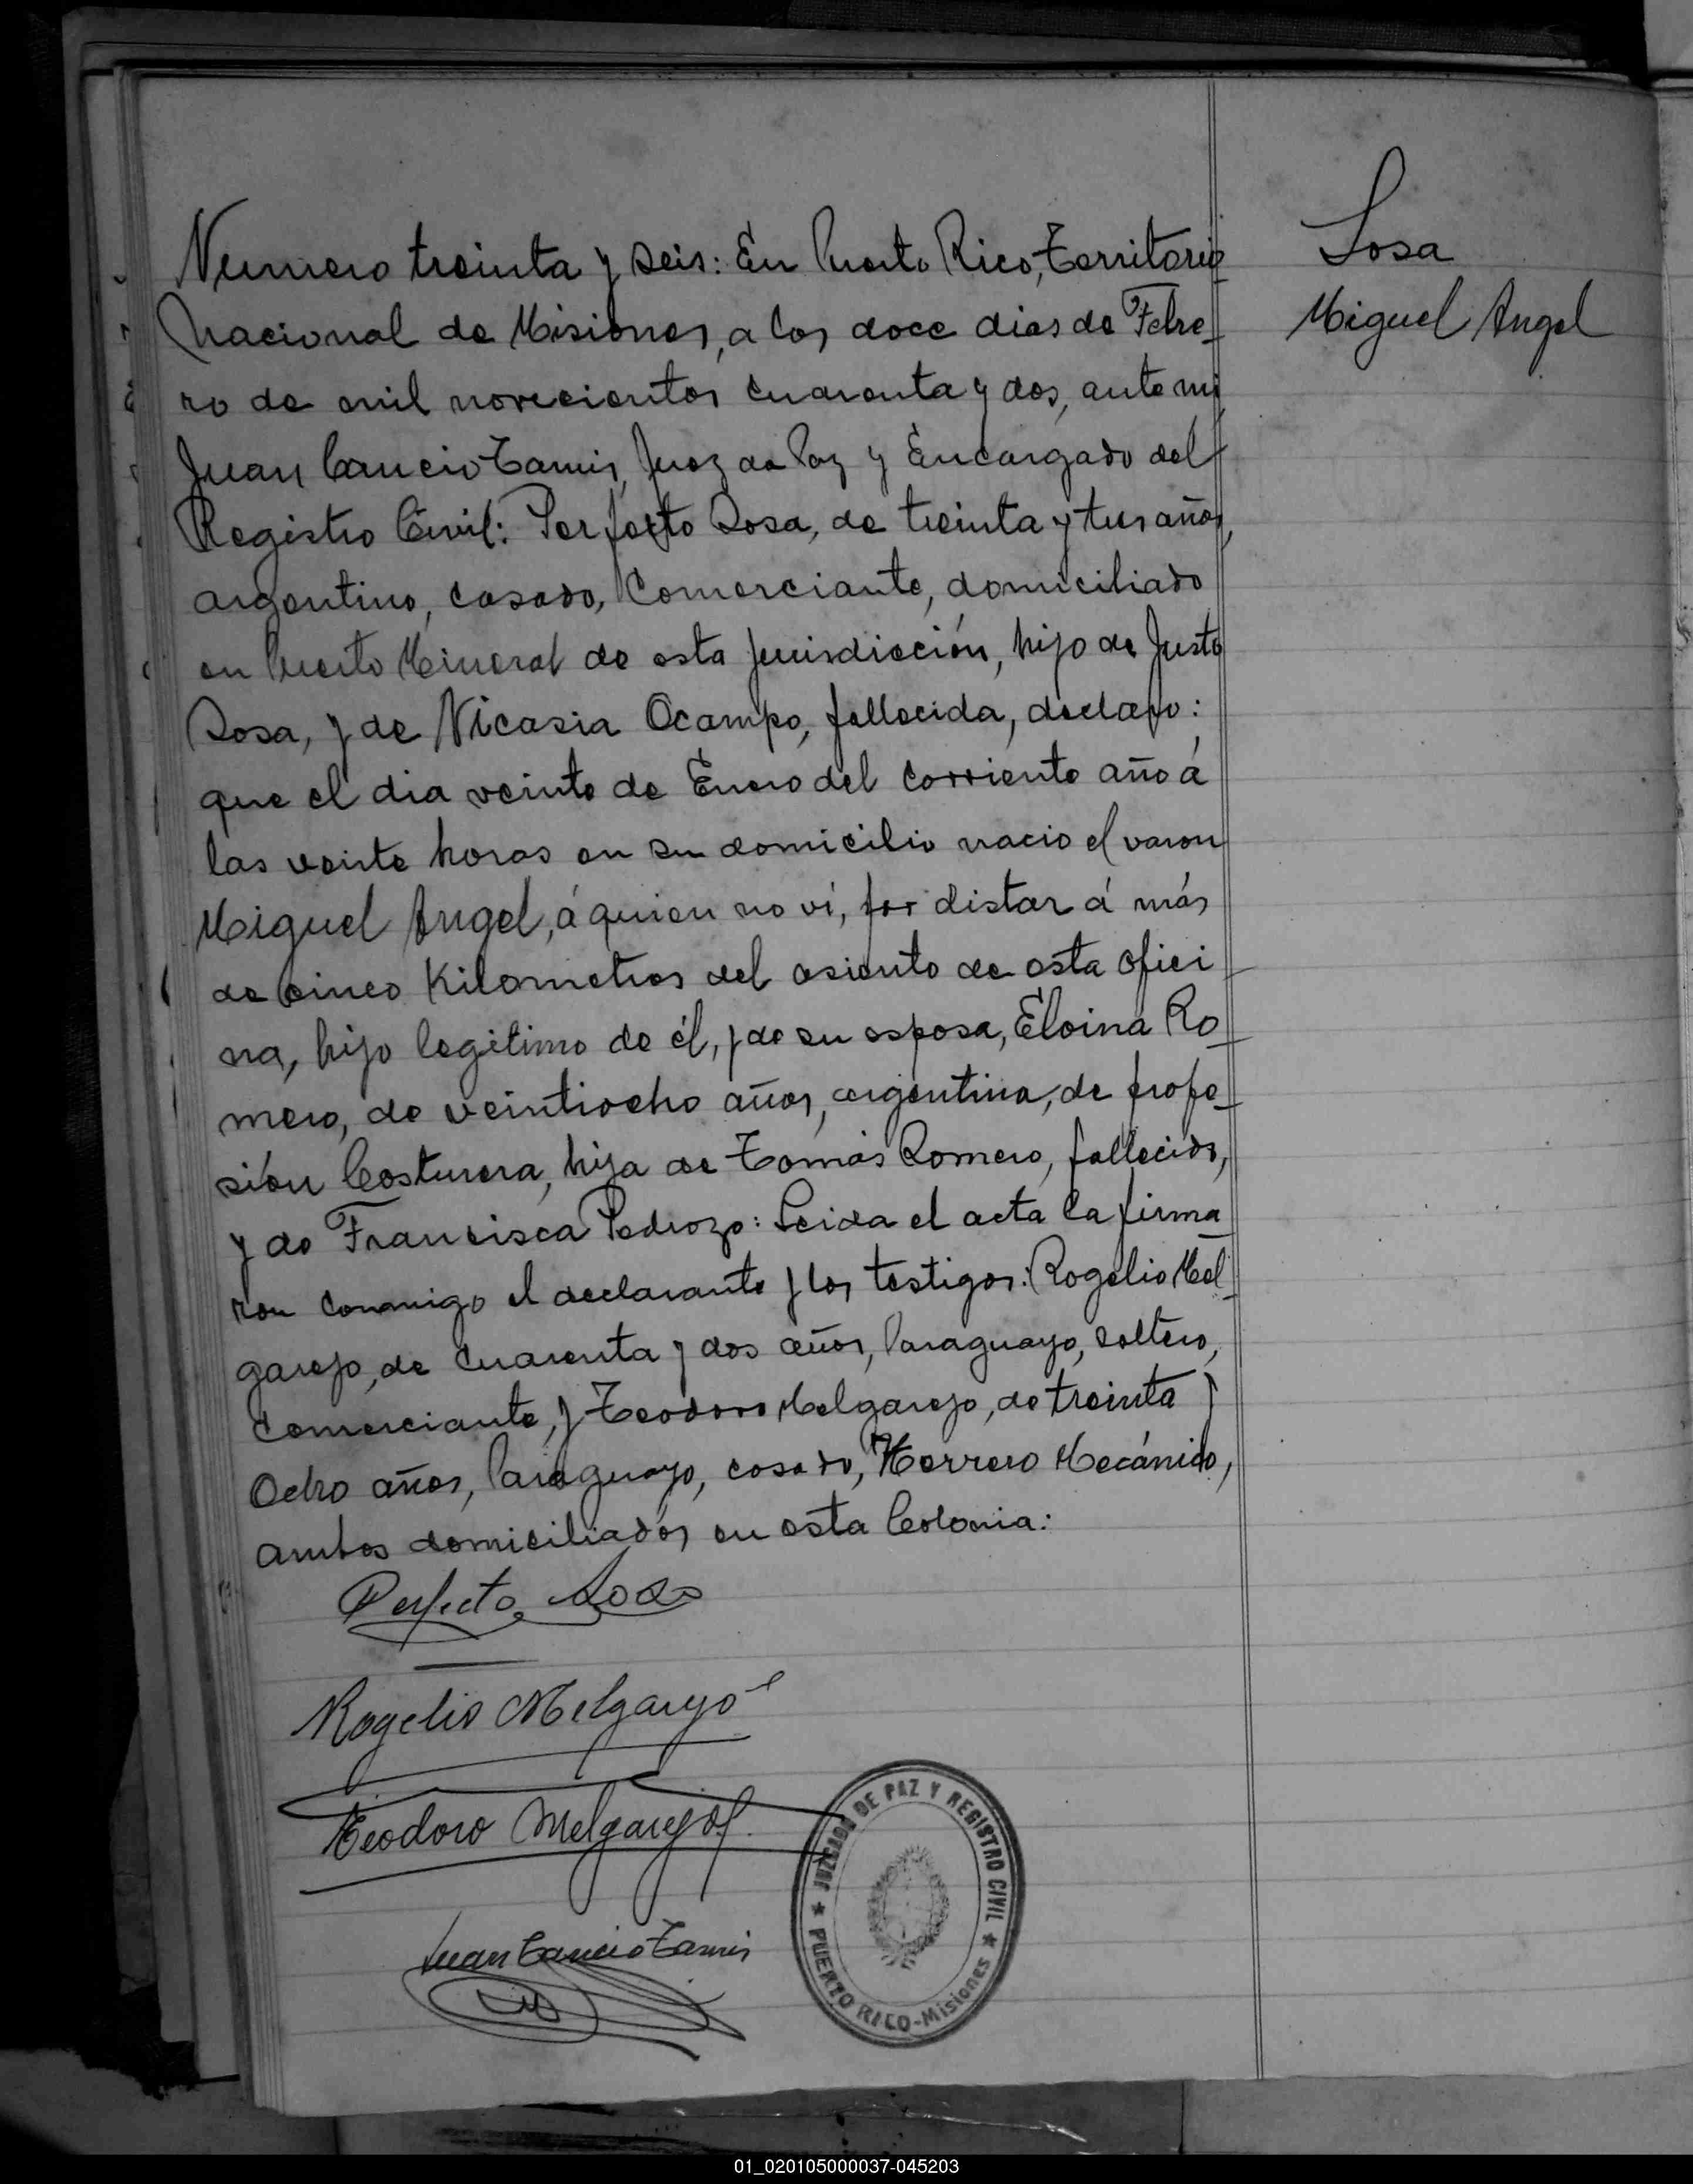 Numero treinta y seis: En Puerto Rico, Territorio
Nacional de Misiones, a los doce dias de Febre-
ro de mil novecientos cuarenta y dos, ante mi
Juan Cancio Tamis, Juez de Paz y Encargado del
Registro Civil: Perfecto Sosa, de treinta y tres años,
argentino, casado, Comerciante, domiciliado
en Puerto Mineral de esta jurisdicción, hijo de Justo
Sosa, y de Nicasia Ocampo, fallecida, declaro:
que el dia veinte de Enero del corriente año á
las veinte horas en su domicilio nacio el varon
Miguel Angel, á quien no ví, por distar á más
de cinco Kilometros del asiento de esta ofici-
na, hijo legitimo de él, y de su esposa, Eloina Ro-
mero, de veintiocho años, argentina, de profe-
sión Costurera, hija de Tomás Romero, fallecido,
y de Francisca Pedrozo: Leida el acta la firma-
ron conmigo el declarante y los testigos: Rogelio Mel-
garejo, de cuarenta y dos años, Paraguayo, soltero,
comerciante, y Teodoro Melgarejo, de treinta y
Ocho años, Paraguayo, casado, Herrero Mecánico,
ambos domiciliados en esta Colonia:
Perfecto Sosa
Rogelio Melgarejo
Teodoro Melgarejo
Juan Cancio Tamis
JUZGADO DE PAZ Y REGISTRO CIVIL
PUERTO RICO-Misiones
Sosa
Miguel Angel
01_020105000037-045203